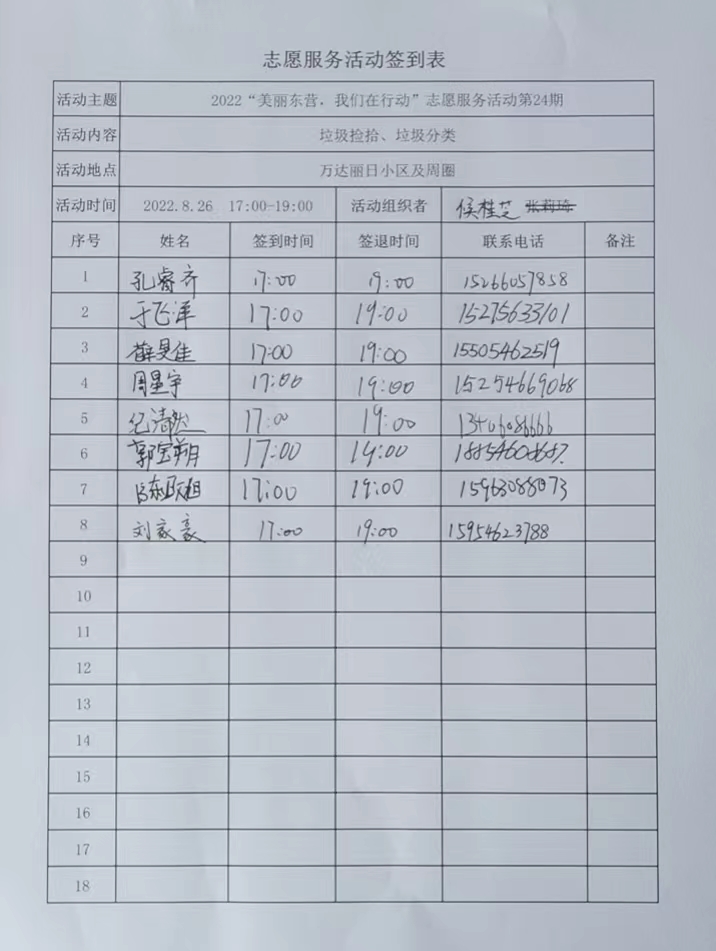 志愿服务活动签到表
活动主题 2022“美丽东营，我们在行动”志愿服务活动第24期
活动内容 垃圾捡拾、垃圾分类
活动地点 万达丽日小区及周圈
活动时间 2022.8.26 17:00-19:00 活动组织者 侯桂芝 张莉琦
序号 姓名 签到时间 签退时间 联系电话 备注
1 孔睿齐 17:00 19:00 15266057858
2 于飞洋 17:00 19:00 15275633101
3 薛旻佳 17:00 19:00 15505462519
4 周星宇 17:00 19:00 15254669068
5 纪清然 17:00 19:00
6 郭宝翔 17:00 19:00
7 17:00 19:00 15963088073
8 刘家豪 17:00 19:00 15954623788
9
10
11
12
13
14
15
16
17
18